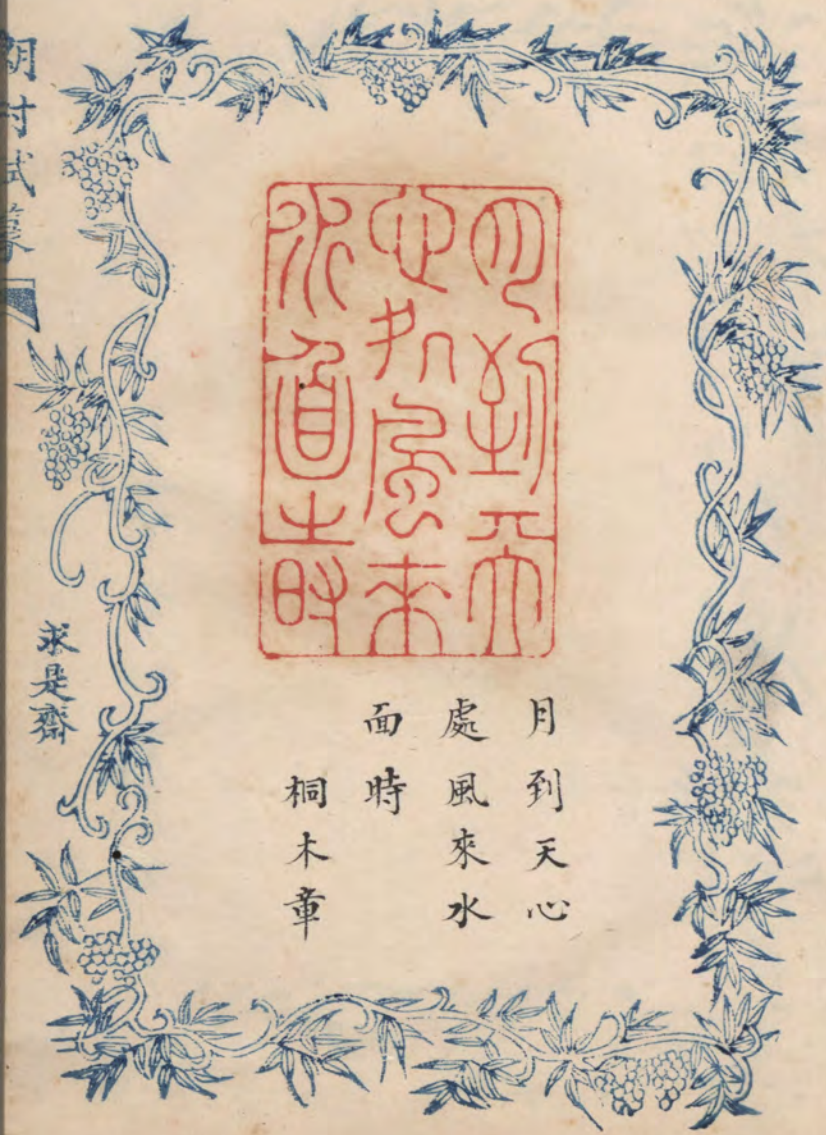 月到天
心处風來
水面時
月到天心
處風來水
面時
桐木章
求是齋